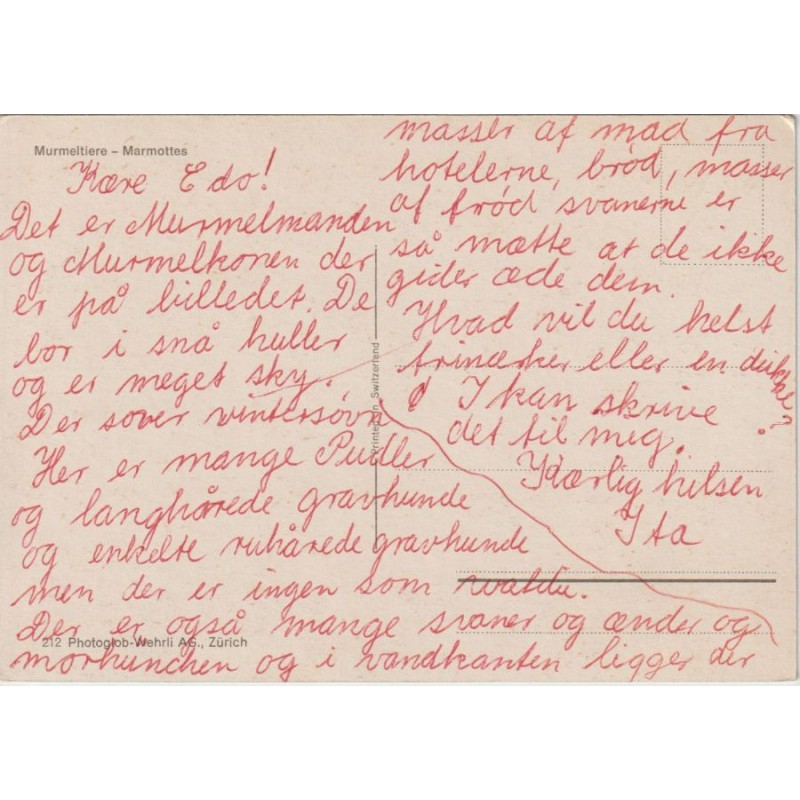 Murmeltiere – Marmottes
Kære Edo!
Det er Murmelmanden
og Murmelkonen der
er på billedet. De
bor i små huller
og er meget sky.
Der sover vintersøvn
Her er mange Pudler
og langhårede gravhunde
og enkelte ruhårede gravhunde
men der er ingen som
Der er også mange svaner og ænder og
morhunchen og i vandkanten ligger der
masser af mad fra
hotelerne, brød, masser
af brød svanerne er
så mætte at de ikke
gider æde dem.
Hvad vil du helst
frimærker eller en dukke?
I kan skrive
det til mig.
Kærlig hilsen
Ita
Printed in Switzerland
212 Photoglob-Wehrli AG., Zürich